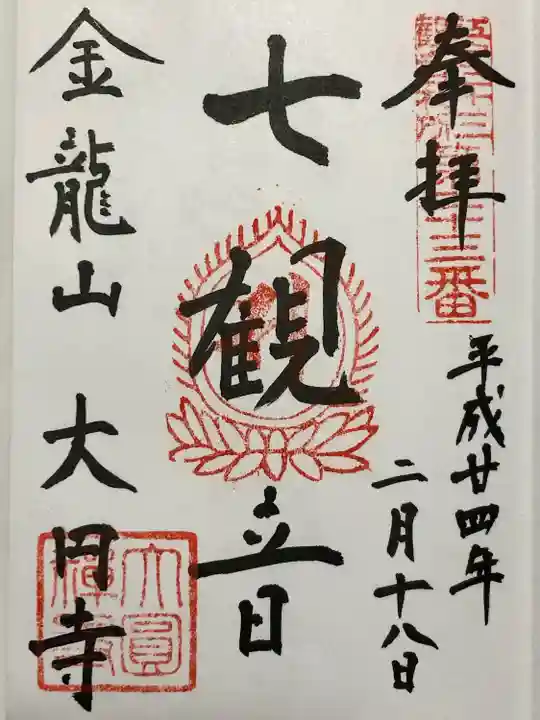 奉拝
平成廿四年
二月十八日
七観音
金龍山 大円寺
大圓
禅寺